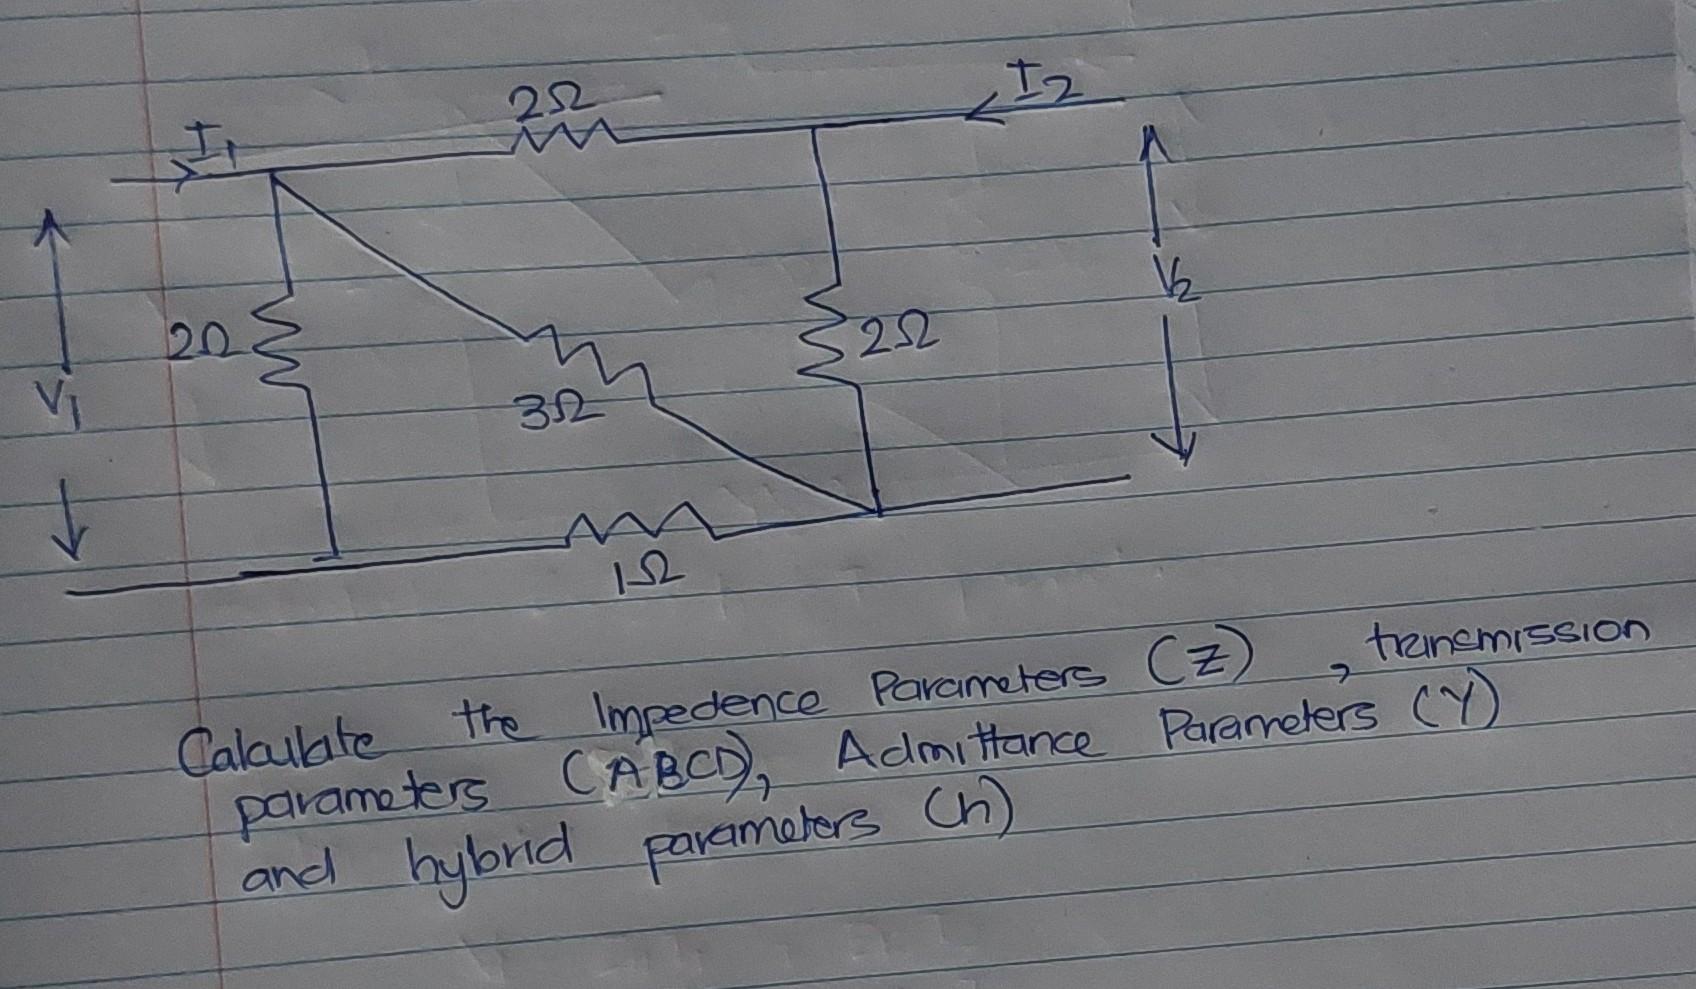 2Ω
I2
I1
V2
2Ω
2Ω
V1
3Ω
1Ω
Calculate the Impedence Parameters (Z), transmission
parameters (ABCD), Admittance Parameters (Y)
and hybrid parameters (h)